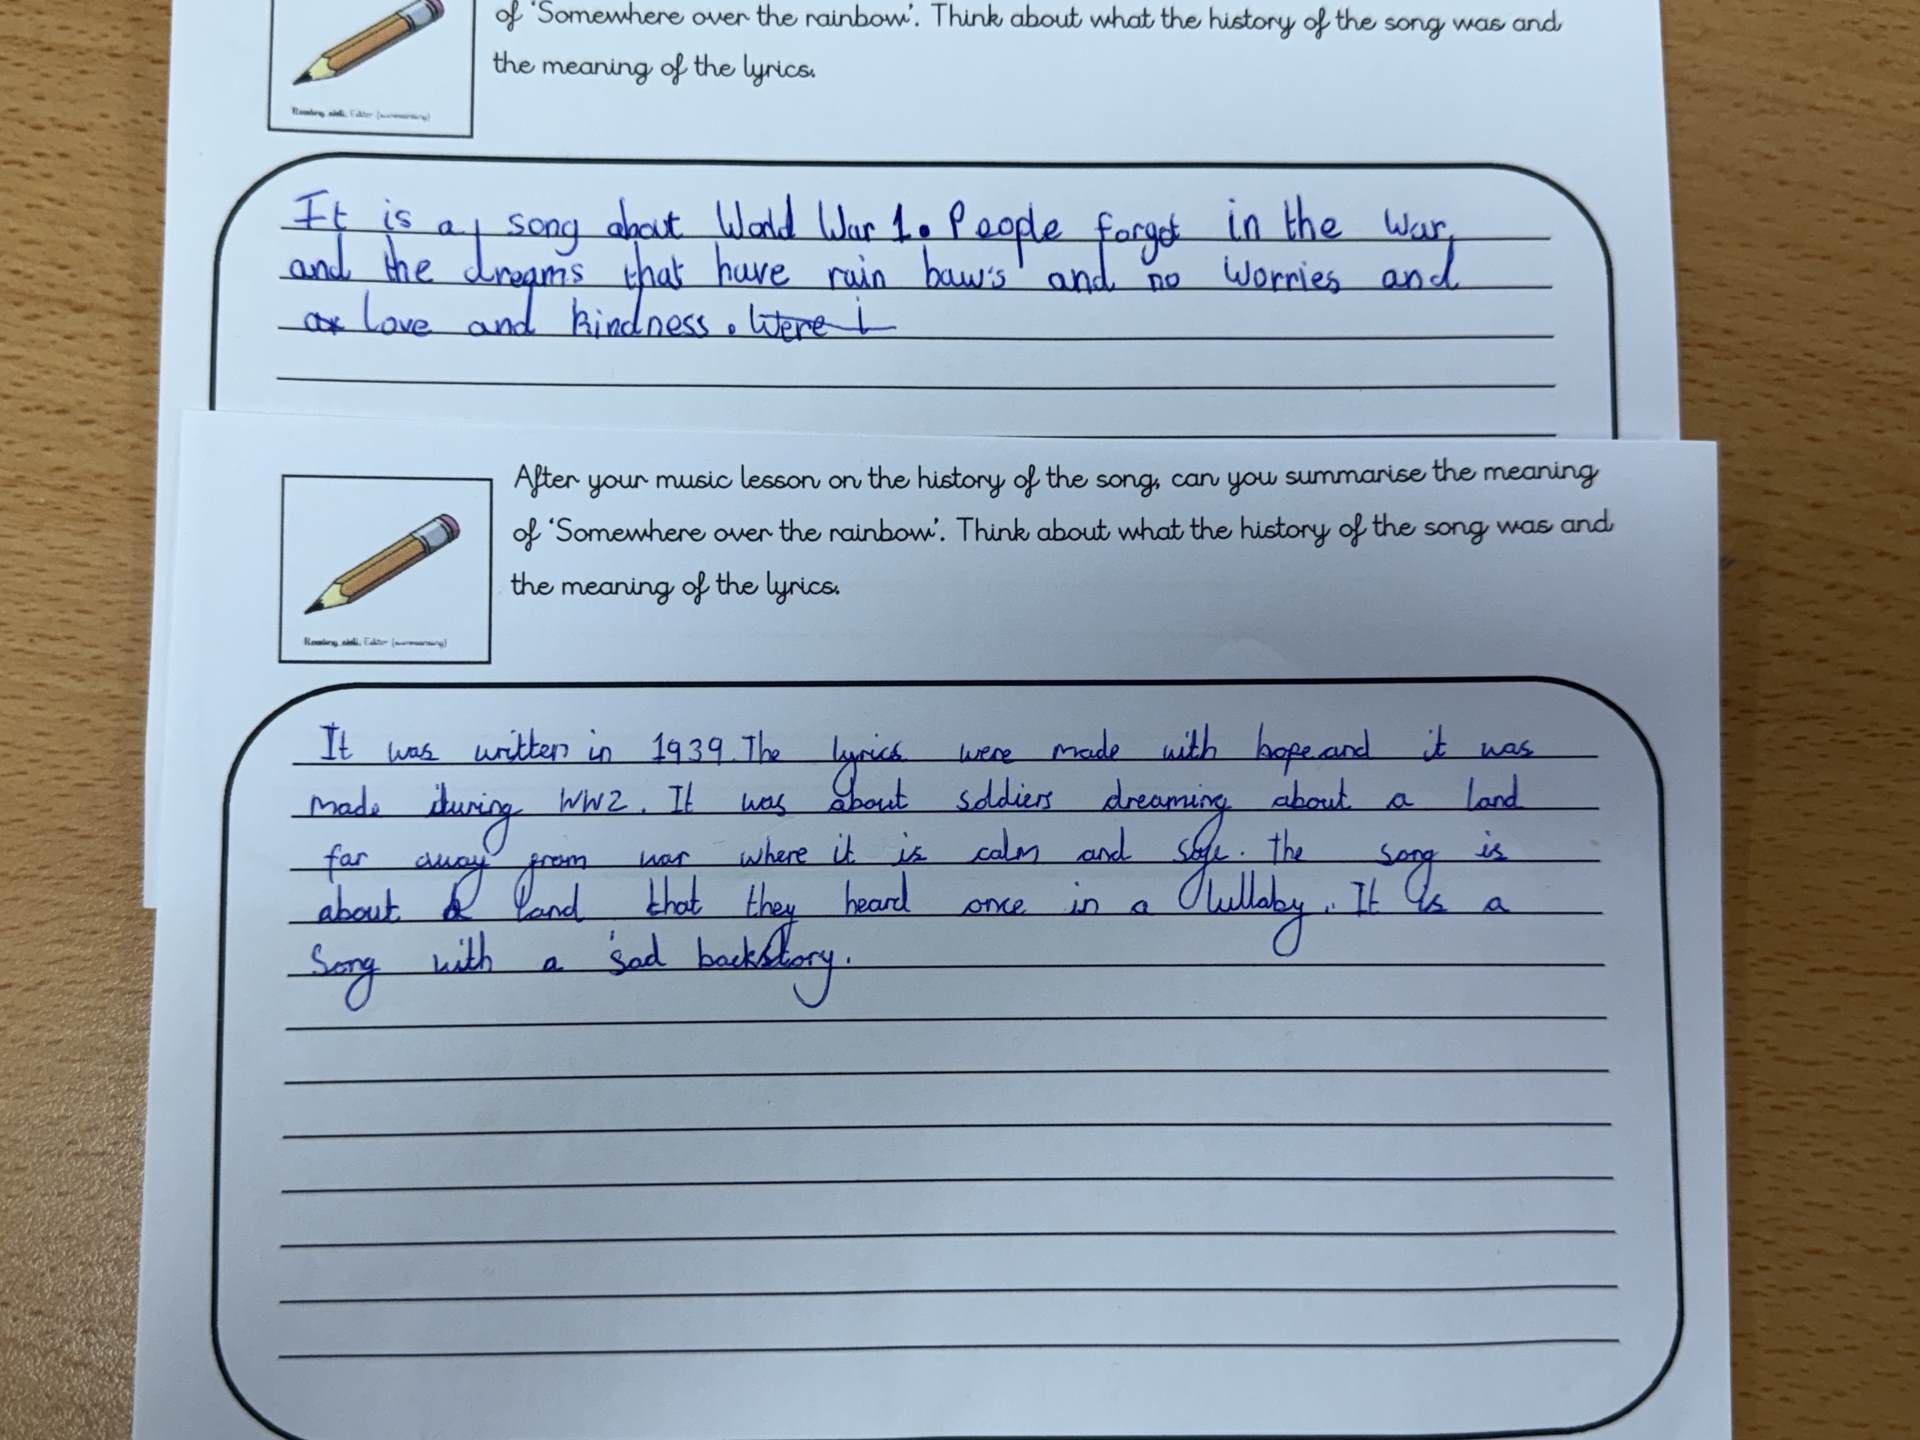 of 'Somewhere over the rainbow'. Think about what the history of the song was and
the meaning of the lyrics.
Reading skill: Editor (summarising)
It is a song about World War 1. People forget in the war,
and the dreams that have rain baws and no worries and
love and kindness. Were i
After your music lesson on the history of the song, can you summarise the meaning
of 'Somewhere over the rainbow'. Think about what the history of the song was and
the meaning of the lyrics.
Reading skill: Editor (summarising)
It was written in 1939. The lyrics were made with hope and it was
made during WW2. It was about soldiers dreaming about a land
far away from war where it is calm and safe. The song is
about a land that they heard once in a lullaby. It is a
song with a sad backstory.